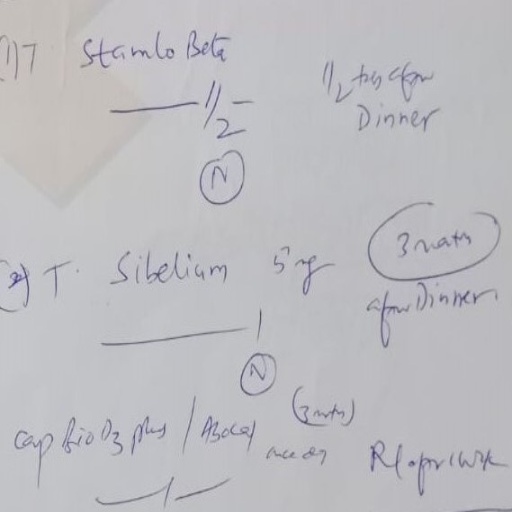 (1) T Stamlo Beta
— 1/2 —
1/2 tab after
Dinner
N
(2) T. Sibelium 5 mg
3 months
after Dinner
— 1
N
cap BioD3 plus /
(3 mths)
R/ after 1 wk
— / —